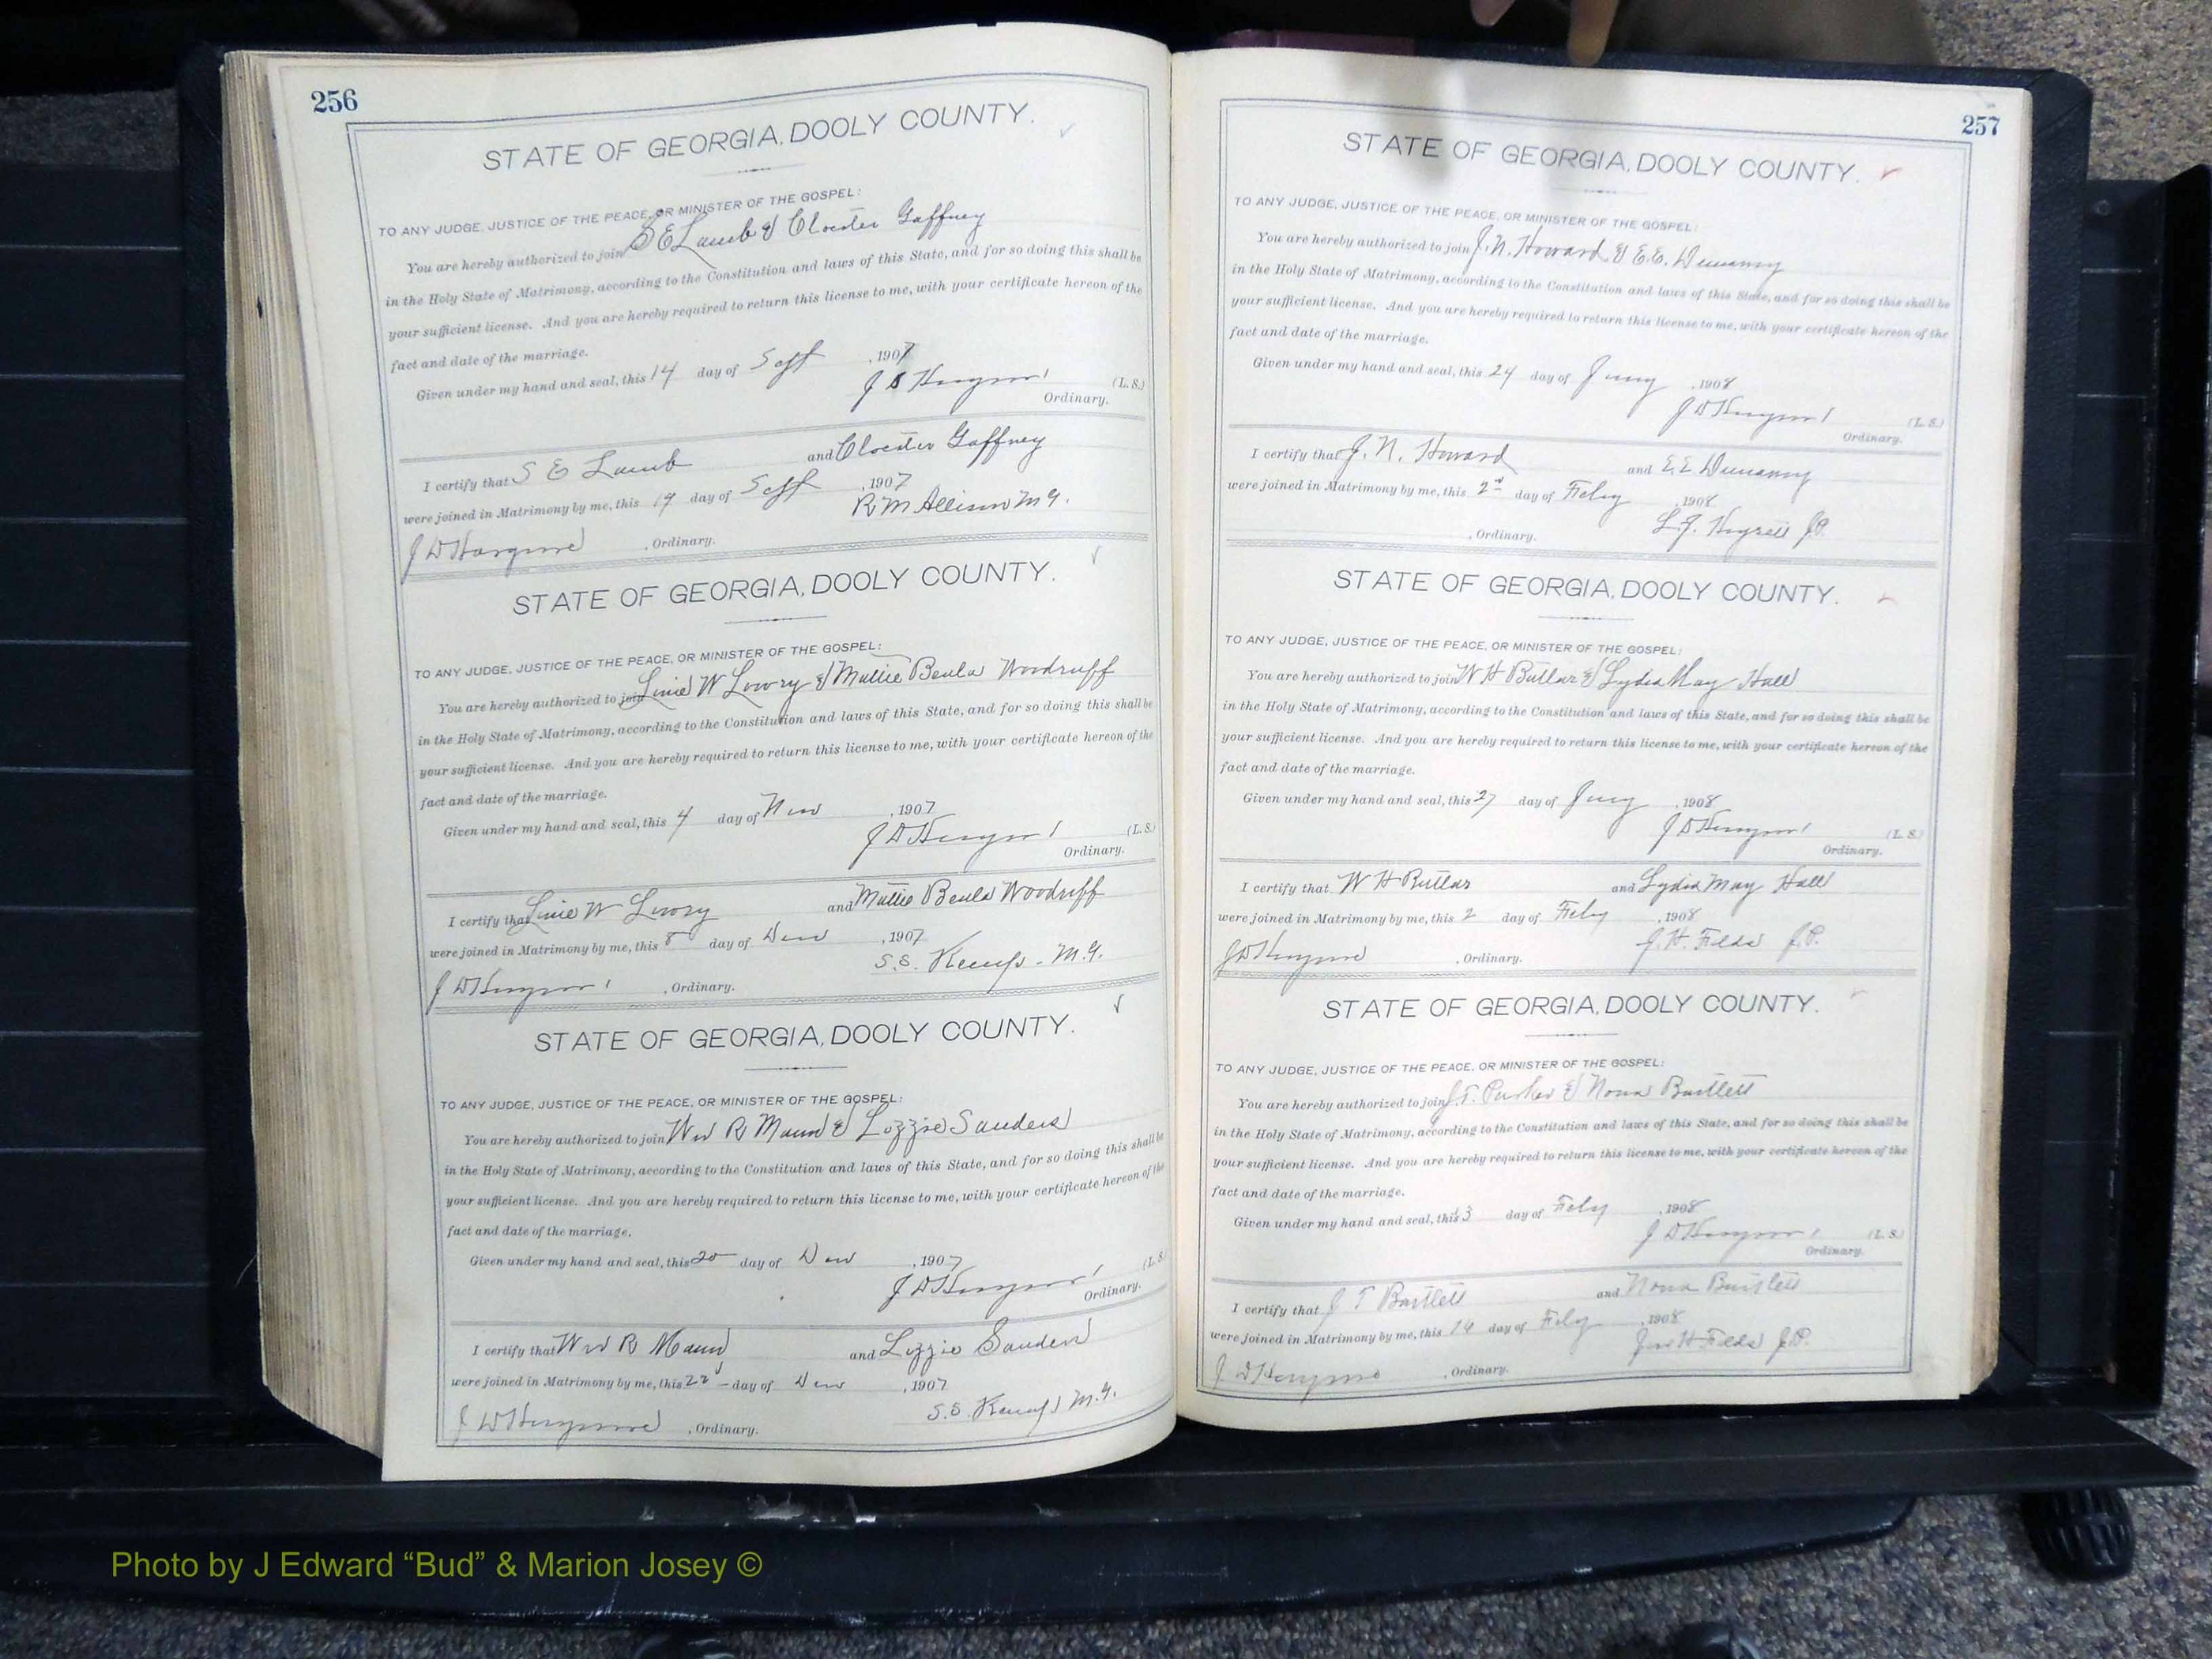 256
STATE OF GEORGIA, DOOLY COUNTY.
TO ANY JUDGE, JUSTICE OF THE PEACE, OR MINISTER OF THE GOSPEL:
You are hereby authorized to join S E Lamb & Gaffney
in the Holy State of Matrimony, according to the Constitution and laws of this State, and for so doing this shall be
your sufficient license. And you are hereby required to return this license to me, with your certificate hereon of the
fact and date of the marriage.
Given under my hand and seal, this 14 day of Sept, 1907
(L. S.)
Ordinary.
I certify that S E Lamb and Gaffney
were joined in Matrimony by me, this day of Sept, 1907
R M Allison M G.
J D Hargrove, Ordinary.
STATE OF GEORGIA, DOOLY COUNTY.
TO ANY JUDGE, JUSTICE OF THE PEACE, OR MINISTER OF THE GOSPEL:
You are hereby authorized to join W Lowry & Mattie Beula Woodruff
in the Holy State of Matrimony, according to the Constitution and laws of this State, and for so doing this shall be
your sufficient license. And you are hereby required to return this license to me, with your certificate hereon of the
fact and date of the marriage.
Given under my hand and seal, this 4 day of, 1907
(L. S.)
Ordinary.
I certify that W Lowry and Mattie Beula Woodruff
were joined in Matrimony by me, this 8 day of, 1907
S. S. Kemp - M. G.
, Ordinary.
STATE OF GEORGIA, DOOLY COUNTY.
TO ANY JUDGE, JUSTICE OF THE PEACE, OR MINISTER OF THE GOSPEL:
You are hereby authorized to join R Mann & Lizzie Sanders
in the Holy State of Matrimony, according to the Constitution and laws of this State, and for so doing this shall be
your sufficient license. And you are hereby required to return this license to me, with your certificate hereon of the
fact and date of the marriage.
Given under my hand and seal, this 20 day of, 1907
(L. S.)
Ordinary.
I certify that R Mann and Lizzie Sanders
were joined in Matrimony by me, this 22 day of, 1907
S. S. Kemp M. G.
, Ordinary.
257
STATE OF GEORGIA, DOOLY COUNTY.
TO ANY JUDGE, JUSTICE OF THE PEACE, OR MINISTER OF THE GOSPEL:
You are hereby authorized to join J. N. Howard & E. E.
in the Holy State of Matrimony, according to the Constitution and laws of this State, and for so doing this shall be
your sufficient license. And you are hereby required to return this license to me, with your certificate hereon of the
fact and date of the marriage.
Given under my hand and seal, this 24 day of, 1908
(L. S.)
Ordinary.
I certify that J. N. Howard and E E
were joined in Matrimony by me, this 2nd day of Feby, 1908
J. P.
, Ordinary.
STATE OF GEORGIA, DOOLY COUNTY.
TO ANY JUDGE, JUSTICE OF THE PEACE, OR MINISTER OF THE GOSPEL:
You are hereby authorized to join W H Butler & Lydia May Hall
in the Holy State of Matrimony, according to the Constitution and laws of this State, and for so doing this shall be
your sufficient license. And you are hereby required to return this license to me, with your certificate hereon of the
fact and date of the marriage.
Given under my hand and seal, this 27 day of, 1908
(L. S.)
Ordinary.
I certify that W H Butler and Lydia May Hall
were joined in Matrimony by me, this 2 day of Feby, 1908
J. H. J. P.
, Ordinary.
STATE OF GEORGIA, DOOLY COUNTY.
TO ANY JUDGE, JUSTICE OF THE PEACE, OR MINISTER OF THE GOSPEL:
You are hereby authorized to join J. T. & Nona Bartlett
in the Holy State of Matrimony, according to the Constitution and laws of this State, and for so doing this shall be
your sufficient license. And you are hereby required to return this license to me, with your certificate hereon of the
fact and date of the marriage.
Given under my hand and seal, this 3 day of Feby, 1908
(L. S.)
Ordinary.
I certify that J T Bartlett and Nona Bartlett
were joined in Matrimony by me, this day of Feby, 1908
J. P.
, Ordinary.
Photo by J Edward “Bud” & Marion Josey ©